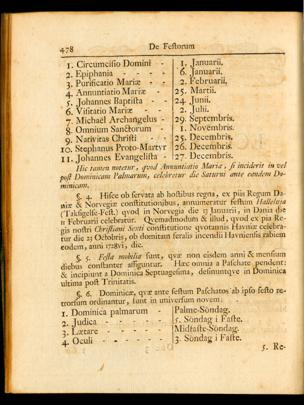 478 De Festorum
1. Circumcisio Domini - - 1. Januarii.
2. Epiphania - - - - 6. Januarii.
3. Purificatio Mariæ - - 2. Februarii.
4. Annuntiatio Mariæ - - 25. Martii.
5. Johannes Baptista - - 24. Junii.
6. Visitatio Mariæ - - 2. Julii.
7. Michaël Archangelus - 29. Septembris.
8. Omnium Sanctorum - - 1. Novembris.
9. Nativitas Christi - - 25. Decembris.
10. Stephanus Proto-Martyr 26. Decembris.
11. Johannes Evangelista - 27. Decembris.
Hic tamen notetur, quod Annuntiatio Mariæ, si inciderit in vel
post Dominicam Palmarum, celebretur die Saturni ante eandem Do-
minicam.
§. 4. Hisce ob servata ab hostibus regna, ex piis Regum Da-
niæ & Norvegiæ constitutionibus, annumeratur festum Halleluja
(Taksigelse-Fest.) quod in Norvegia die 17 Januarii, in Dania die
11 Februarii celebratur. Quemadmodum & illud, quod ex pia Re-
gis nostri Christiani Sexti constitutione quotannis Havniæ celebra-
tur die 23 Octobris, ob domitam feralis incendii Havniensis rabiem
eodem, anni 1728vi, die.
§. 5. Festa mobilia sunt, quæ non eisdem anni & mensium
diebus constanter assiguntur. Hæc omnia a Paschate pendent:
& incipiunt a Dominica Septuagesima, desinuntqve in Dominica
ultima post Trinitatis.
§. 6. Dominicæ, qvæ ante festum Paschatos ab ipso festo re-
trorsum ordinantur, sunt in universum novem:
1. Dominica palmarum - Palme-Söndag.
2. Judica - - - - 5. Söndag i Faste.
3. Lætare - - - - Midfaste-Söndag.
4. Oculi - - - - 3. Söndag i Faste.
5. Re-